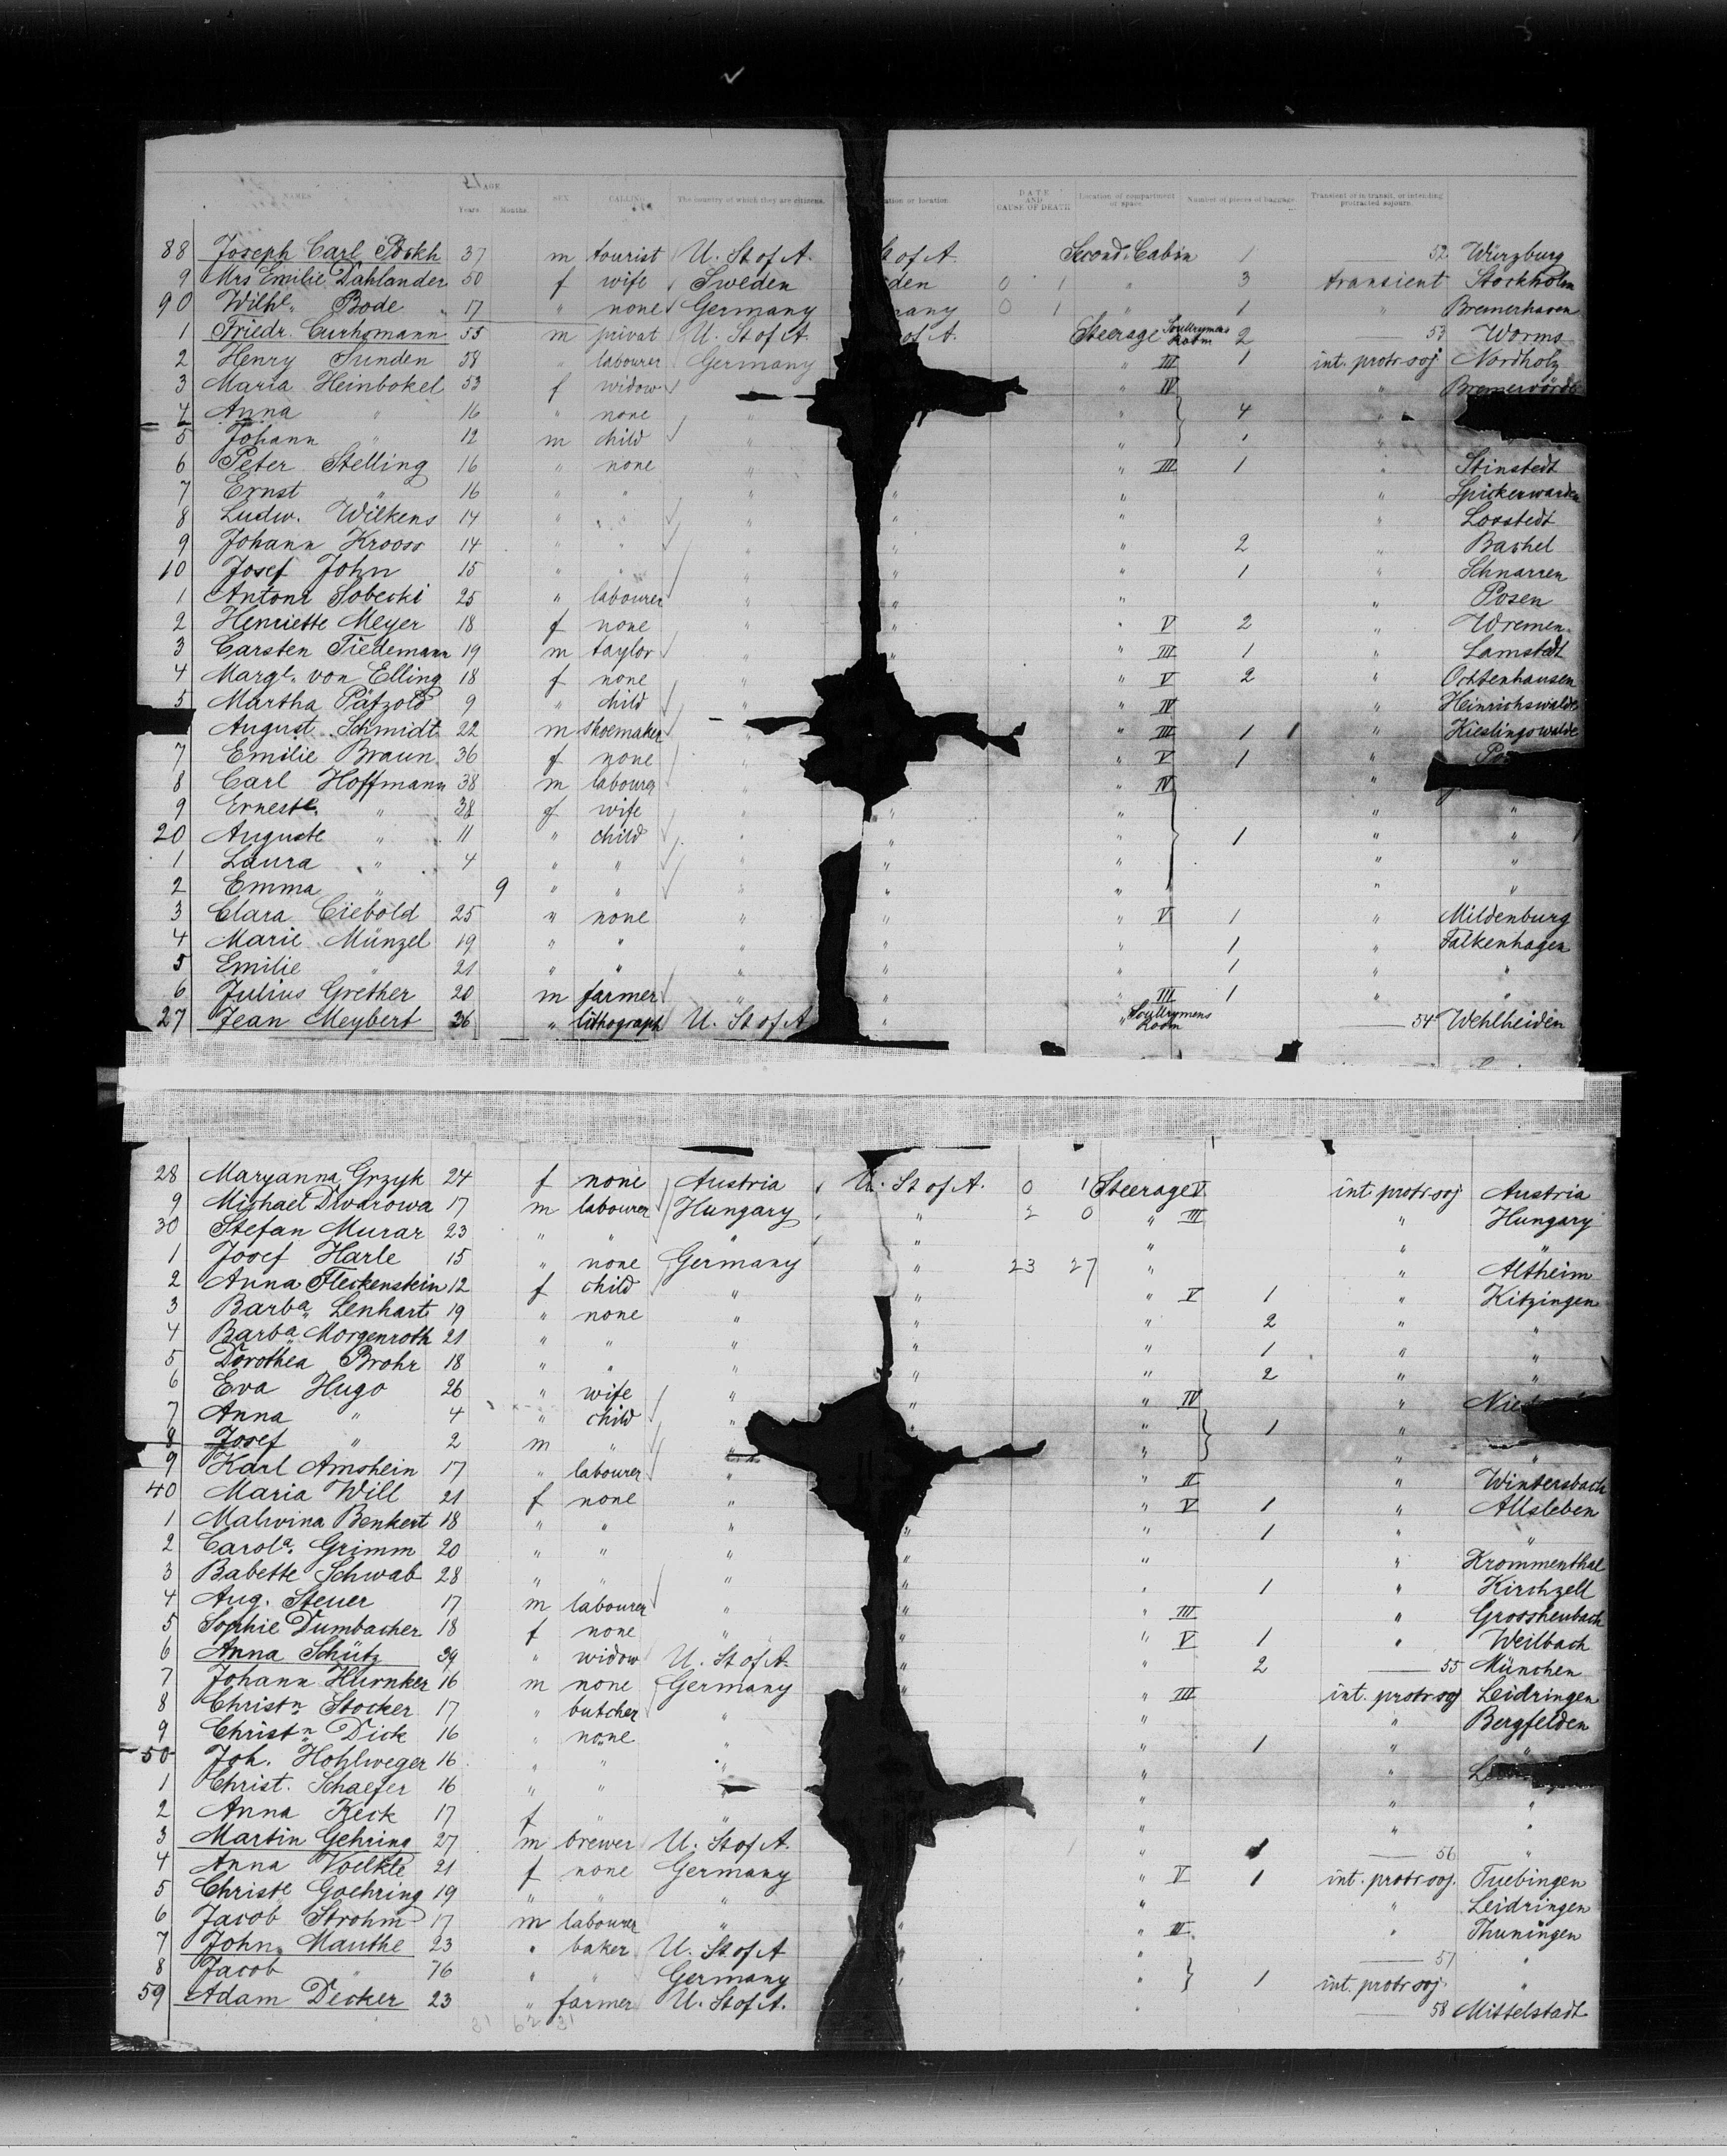 NAMES AGE Years. Months. SEX CALLING The country of which they are citizens. ation or location DATE AND CAUSE OF DEATH Location of compartment or space Number of pieces of baggage Transient or in transit, or intending protracted sojourn.
88 Joseph Carl 37 m tourist U. St of A. t of A. Second Cabin 1 52 Würzburg
9 Mrs Emilie Dahlander 50 f wife Sweden den 0 1 " 3 transient Stockholm
90 Wilhl. Bode 17 " none Germany many 0 1 " 1 " Bremerhaven
1 Friedr. Curhsmann 55 m privat U. St of A. of A. Steerage 2 53 Worms
2 Henry Sunden 38 " labourer Germany " III 1 int. protr. soj. Nordholz
3 Maria Heinbokel 53 f widow " IV " Bremervörde
4 Anna " 16 " none " " 4 "
5 Johann " 12 m child " " 1 "
6 Peter Stelling 16 " none " " III 1 " Stinstedt
7 Ernst " 16 " " " " " " Spickerwarden
8 Ludw. Wilkens 14 " " " " " " Loxstedt
9 Johann Krooss 14 " " " " " 2 " Bashel
10 Josef John 15 " " " " " 1 " Schnarren
1 Antoni Sobecki 25 " labourer " " " " Posen
2 Henriette Meyer 18 f none " " " V 2 " Wremen
3 Carsten Tiedemann 19 m taylor " " " III 1 " Lamstedt
4 Margt. von Elling 18 f none " " V 2 " Ostenhausen
5 Martha Pätzold 9 " child " " IV " Heinrichswalde
August Schmidt 22 m shoemaker " " III 1 1 " Kieslingswalde
7 Emilie Braun 36 f none " " V 1 " Po
8 Carl Hoffmann 38 m labourer " " IV "
9 Erneste " 38 f wife " " " "
20 Auguste " 11 " child " " " 1 " "
1 Laura " 4 " " " " " " "
2 Emma " 9 " " " " " " "
3 Clara Ciebold 25 " none " " " V 1 " Mildenburg
4 Marie Münzel 19 " " " " " 1 " Falkenhagen
5 Emilie " 21 " " " " " 1 " "
6 Julius Grether 20 m farmer " " " III 1 " "
27 Jean Meybert 36 " lithograph U. St of A " " Room 54 Wehlheiden
28 Maryanna Grzyk 24 f none Austria U. St of A. 0 1 Steerage V int. protr. soj Austria
9 Michael Dwarowa 17 m labourer Hungary " 2 0 " III " Hungary
30 Stefan Murar 23 " " " " " " "
1 Josef Harle 15 " none Germany " 23 27 " " Altheim
2 Anna Fleckenstein 12 f child " " " V 1 " Kitzingen
3 Barba. Lenhart 19 " none " " " 2 " "
4 Barba. Morgenroth 21 " " " " " 1 " "
5 Dorothea Brohr 18 " " " " " 2 " "
6 Eva Hugo 26 " wife " " " IV " Nied
7 Anna " 4 " child " " 1 "
8 Josef " 2 m " " " " "
9 Karl Amshein 17 " labourer " " II " Wintersbach
40 Maria Will 21 f none " " V 1 " Allsleben
1 Malwina Benkert 18 " " " " " 1 " "
2 Carola. Grimm 20 " " " " " " Krommenthal
3 Babette Schwab 28 " " " " " 1 " Kirchzell
4 Aug. Steuer 17 m labourer " " " III " Grossheubach
5 Sophie Dumbacher 18 f none " " " V 1 " Weilbach
6 Anna Schütz 39 " widow U. St of A. " " 2 55 München
7 Johann Hurnker 16 m none Germany " " III int. protr. soj Leidringen
8 Christn. Stocker 17 " butcher " " " Bergfelden
9 Christn. Dick 16 " none " " 1 " "
50 Joh. Hohlweger 16 " " " " "
1 Christ. Schaefer 16 " " " " " "
2 Anna Keck 17 f " " " " "
3 Martin Gehring 27 m brewer U. St of A. " 1 56 "
4 Anna Voelkle 21 f none Germany " V 1 int. protr. soj. Tuebingen
5 Christe Goehring 19 " " " " " Leidringen
6 Jacob Strohm 17 m labourer " " " III " Thuningen
7 John Mauthe 23 " baker U. St of A " " 57 "
8 Jacob " 16 " " Germany " " 1 int. protr. soj. "
59 Adam Decker 23 " farmer U. St of A. " 58 Mittelstadt